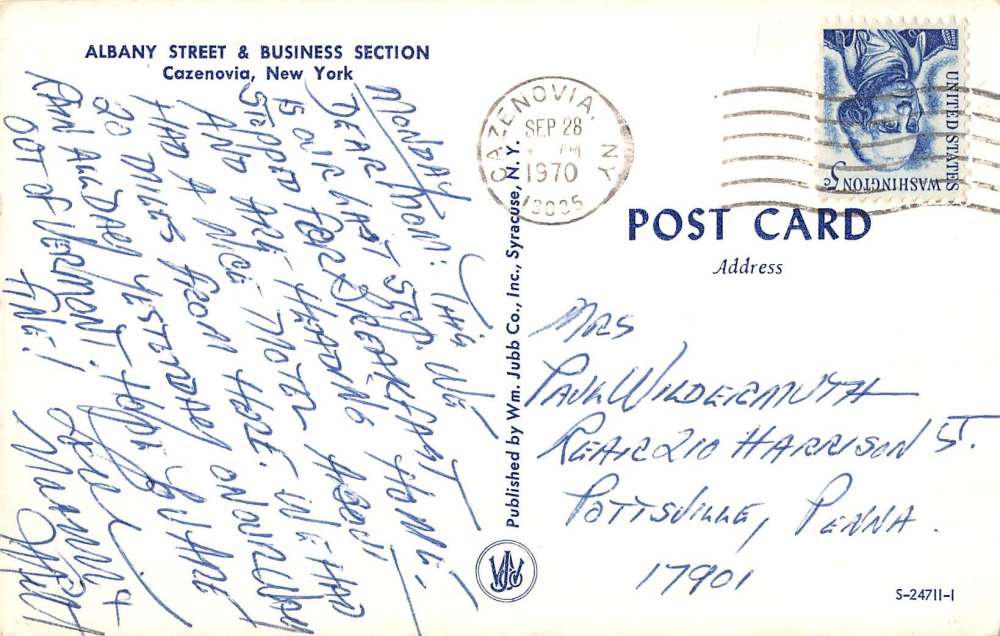 ALBANY STREET & BUSINESS SECTION
Cazenovia, New York
MONDAY
DEAR MOM: THIS WE
IS OUR LAST STOP.
STOPPED FOR BREAKFAST
AND ARE HEADING HOME.
HAD A NICE MOTEL ABOUT
20 MILES FROM HERE. WE HAD
RAIN ALL DAY YESTERDAY ON OUR WAY
OUT OF VERMONT. HOPE YOU ARE
FINE! LOVE,
&
Published by Wm. Jubb Co., Inc., Syracuse, N. Y.
CAZENOVIA, NY
SEP 28
1970
13035
UNITED STATES
WASHINGTON 5c
POST CARD
Address
MRS
PAUL WILDERMUTH
REAR 210 HARRISON ST.
POTTSVILLE, PENNA.
17901
S-24711-1